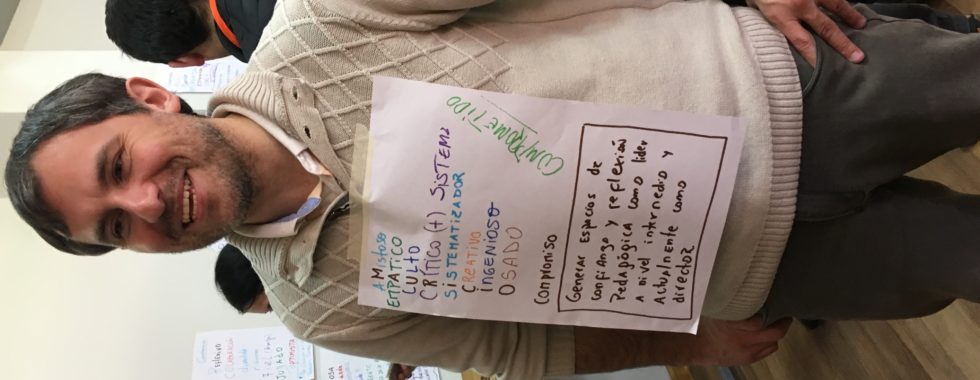 AMistoso
EMPATICO
CULTO
CRÍTICO (+) SISTEMA
SISTEMATIZADOR
CREATIVO
INGENIOSO
OSADO
COMPROMETIDO
COMPROMISO
Generar espacios de
confianza y reflexión
Pedagógica como líder
a nivel intermedio y
Actualmente como
director